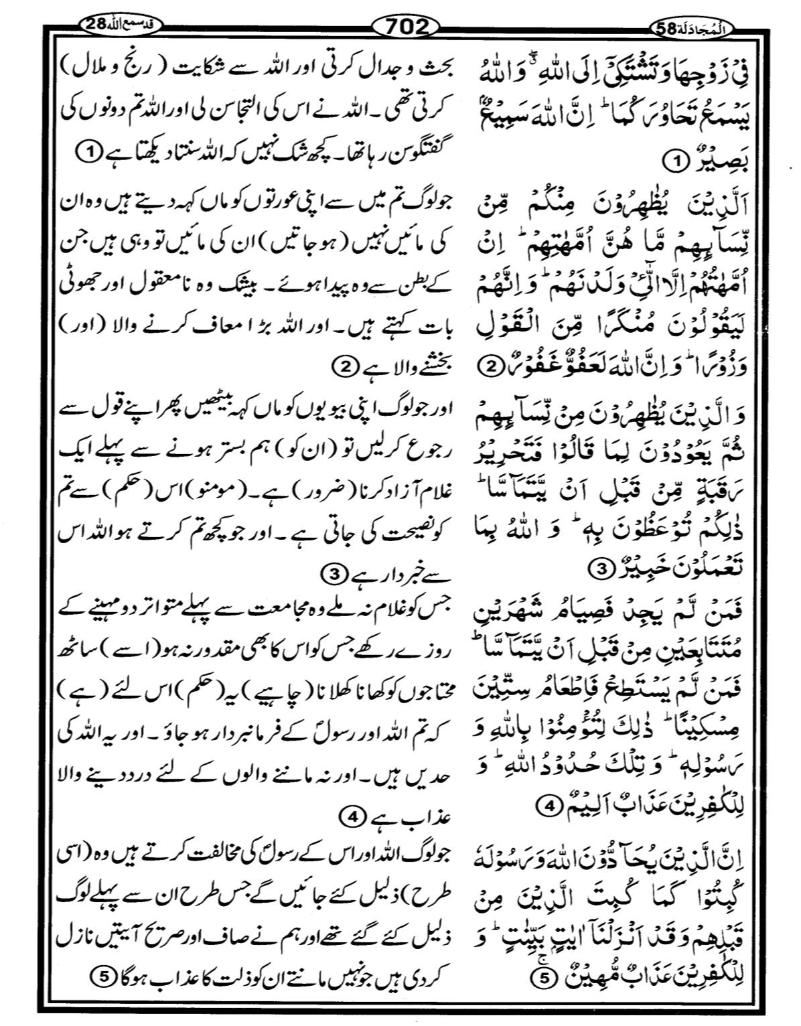 المُجَادلَة 58
702
قد سمع الله 28
فِىۡ زَوۡجِهَا وَتَشۡتَكِىۡۤ اِلَى اللّٰهِ ۖ وَاللّٰهُ
يَسۡمَعُ تَحَاوُرَكُمَا ؕ اِنَّ اللّٰهَ سَمِيۡعٌۢ
بَصِيۡرٌ ①
اَلَّذِيۡنَ يُظٰهِرُوۡنَ مِنۡكُمۡ مِّنۡ
نِّسَآٮِٕهِمۡ مَّا هُنَّ اُمَّهٰتِهِمۡ ؕ اِنۡ
اُمَّهٰتُهُمۡ اِلَّا الّٰٓـىِٔۡ وَلَدۡنَهُمۡ ؕ وَاِنَّهُمۡ
لَيَقُوۡلُوۡنَ مُنۡكَرًا مِّنَ الۡقَوۡلِ
وَزُوۡرًا ؕ وَاِنَّ اللّٰهَ لَعَفُوٌّ غَفُوۡرٌ ②
وَالَّذِيۡنَ يُظٰهِرُوۡنَ مِنۡ نِّسَآٮِٕهِمۡ
ثُمَّ يَعُوۡدُوۡنَ لِمَا قَالُوۡا فَتَحۡرِيۡرُ
رَقَبَةٍ مِّنۡ قَبۡلِ اَنۡ يَّتَمَآسَّا ؕ
ذٰلِكُمۡ تُوۡعَظُوۡنَ بِهٖ ؕ وَ اللّٰهُ بِمَا
تَعۡمَلُوۡنَ خَبِيۡرٌ ③
فَمَنۡ لَّمۡ يَجِدۡ فَصِيَامُ شَهۡرَيۡنِ
مُتَتَابِعَيۡنِ مِنۡ قَبۡلِ اَنۡ يَّتَمَآسَّا ؕ
فَمَنۡ لَّمۡ يَسۡتَطِعۡ فَاِطۡعَامُ سِتِّيۡنَ
مِسۡكِيۡنًا ؕ ذٰلِكَ لِتُؤۡمِنُوۡا بِاللّٰهِ وَ
رَسُوۡلِهٖ ؕ وَ تِلۡكَ حُدُوۡدُ اللّٰهِ ؕ وَ
لِلۡكٰفِرِيۡنَ عَذَابٌ اَلِيۡمٌ ④
اِنَّ الَّذِيۡنَ يُحَآدُّوۡنَ اللّٰهَ وَرَسُوۡلَهٗ
كُبِتُوۡا كَمَا كُبِتَ الَّذِيۡنَ مِنۡ
قَبۡلِهِمۡ وَقَدۡ اَنۡزَلۡنَاۤ اٰيٰتٍۭ بَيِّنٰتٍ ؕ وَ
لِلۡكٰفِرِيۡنَ عَذَابٌ مُّهِيۡنٌ ۚ ⑤
بحث و جدال کرتی اور اللہ سے شکایت ( رنج و ملال )
کرتی تھی ۔ اللہ نے اس کی التجا سن لی اور اللہ تم دونوں کی
گفتگو سن رہا تھا ۔ کچھ شک نہیں کہ اللہ سنتا دیکھتا ہے ①
جو لوگ تم میں سے اپنی عورتوں کو ماں کہہ دیتے ہیں وہ ان
کی مائیں نہیں (ہو جاتیں) ان کی مائیں تو وہی ہیں جن
کے بطن سے وہ پیدا ہوئے ۔ بیشک وہ نامعقول اور جھوٹی
بات کہتے ہیں ۔ اور اللہ بڑا معاف کرنے والا (اور)
بخشنے والا ہے ②
اور جو لوگ اپنی بیویوں کو ماں کہہ بیٹھیں پھر اپنے قول سے
رجوع کرلیں تو (ان کو) ہم بستر ہونے سے پہلے ایک
غلام آزاد کرنا (ضرور) ہے ۔ (مومنو) اس (حکم) سے تم
کو نصیحت کی جاتی ہے ۔ اور جو کچھ تم کرتے ہو اللہ اس
سے خبردار ہے ③
جس کو غلام نہ ملے وہ مجامعت سے پہلے متواتر دو مہینے کے
روزے رکھے جس کو اس کا بھی مقدور نہ ہو (اسے) ساٹھ
محتاجوں کو کھانا کھلانا (چاہیے) یہ (حکم) اس لئے (ہے)
کہ تم اللہ اور رسولؐ کے فرمانبردار ہو جاؤ ۔ اور یہ اللہ کی
حدیں ہیں ۔ اور نہ ماننے والوں کے لئے درد دینے والا
عذاب ہے ④
جو لوگ اللہ اور اس کے رسولؐ کی مخالفت کرتے ہیں وہ (اسی
طرح) ذلیل کئے جائیں گے جس طرح ان سے پہلے لوگ
ذلیل کئے گئے تھے اور ہم نے صاف اور صریح آیتیں نازل
کردی ہیں جو نہیں مانتے ان کو ذلت کا عذاب ہوگا ⑤